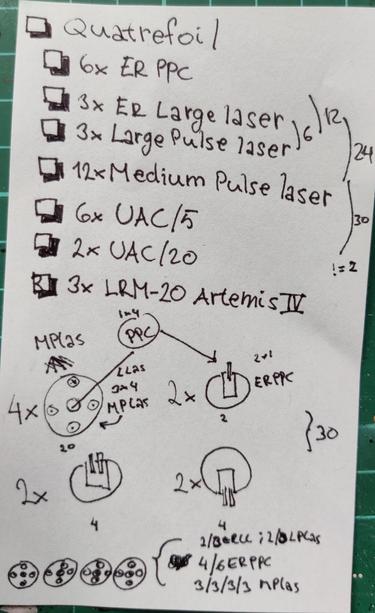 Quatrefoil
6x ER PPC
3x ER Large laser
3x Large Pulse laser
12x Medium Pulse laser
6x UAC/5
2x UAC/20
3x LRM-20 Artemis IV
12
6
24
30
!=2
1x4
PPC
MPlas
LLas
3x4
MPlas
4x
20
2x
2x1
ERPPC
2
30
2x
4
2x
4
4/6 ERPPC
3/3/3/3 MPlas